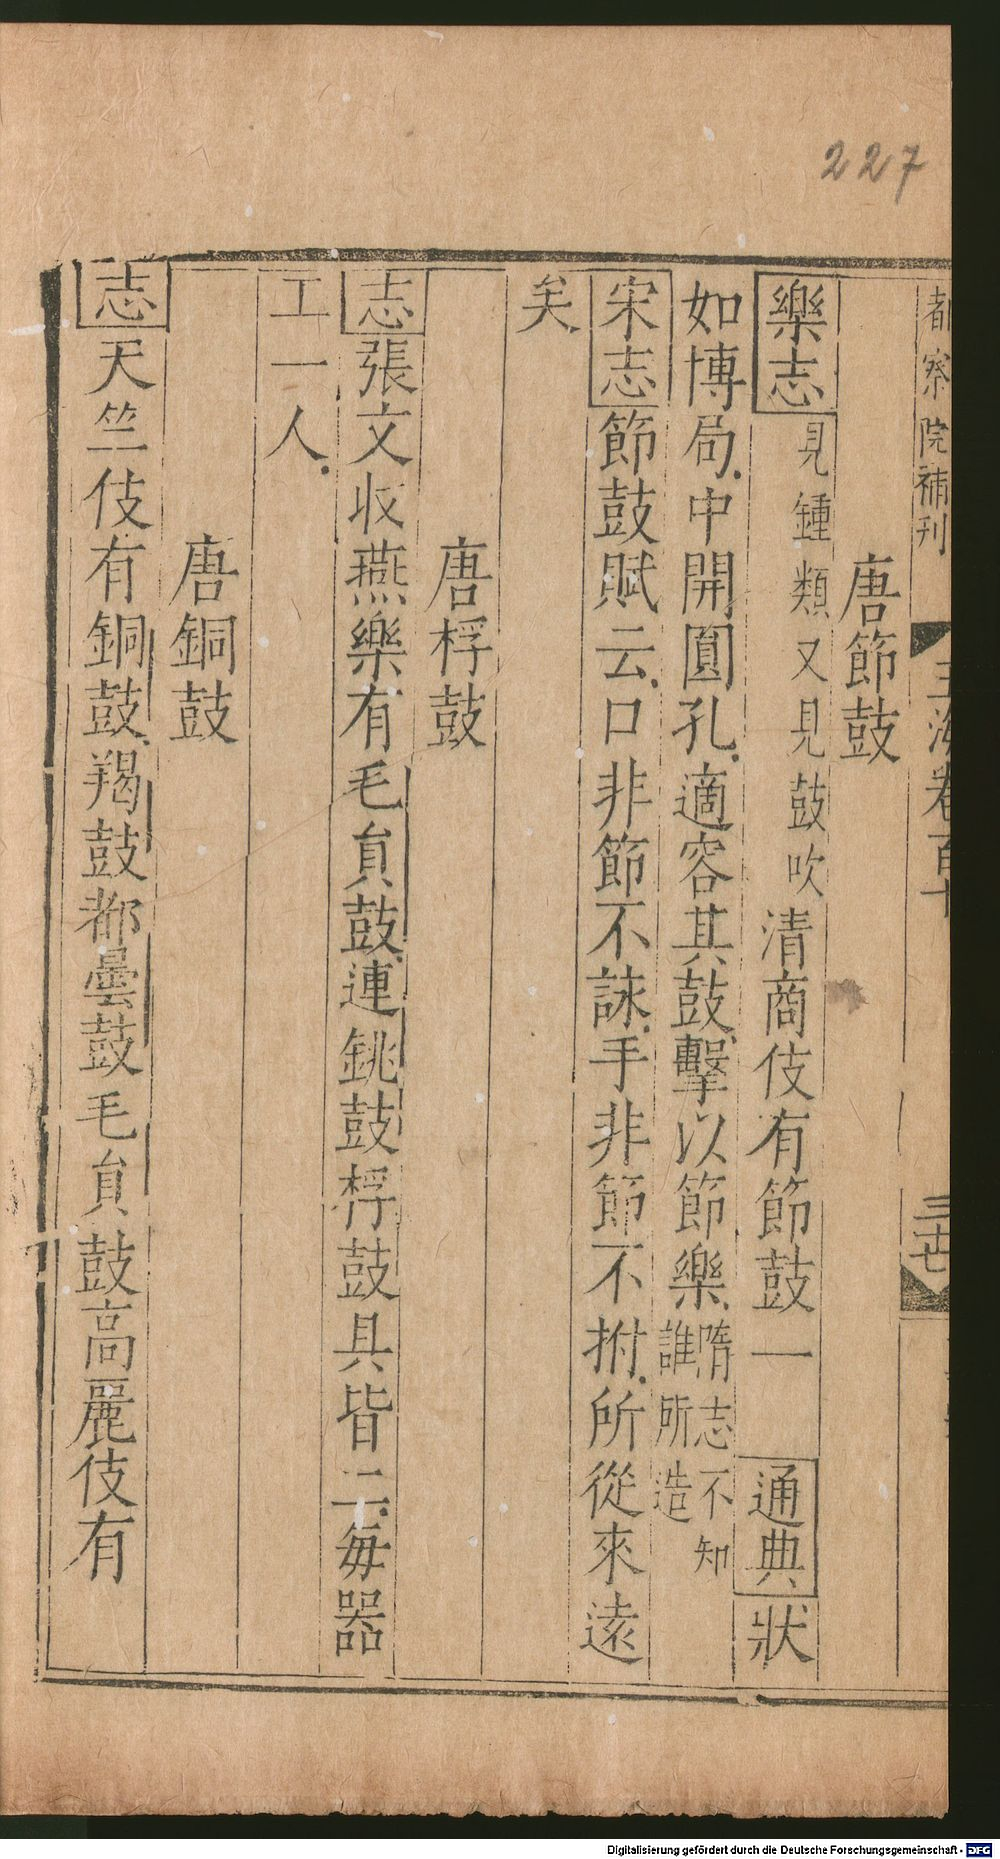 227
都察院補刊
玉海卷百十
三十七
唐節鼓
樂志見鍾類又見鼓吹清商伎有節鼓一通典狀
如博局中開圓孔適容其鼓擊以節樂隋志不知誰所造
宋志節鼓賦云口非節不詠手非節不拊所從來遠
矣
唐桴鼓
志張文收燕樂有毛員鼓連鞉鼓桴鼓具皆二每器
工一人
唐銅鼓
志天竺伎有銅鼓羯鼓都曇鼓毛員鼓高麗伎有
Digitalisierung gefördert durch die Deutsche Forschungsgemeinschaft - DFG